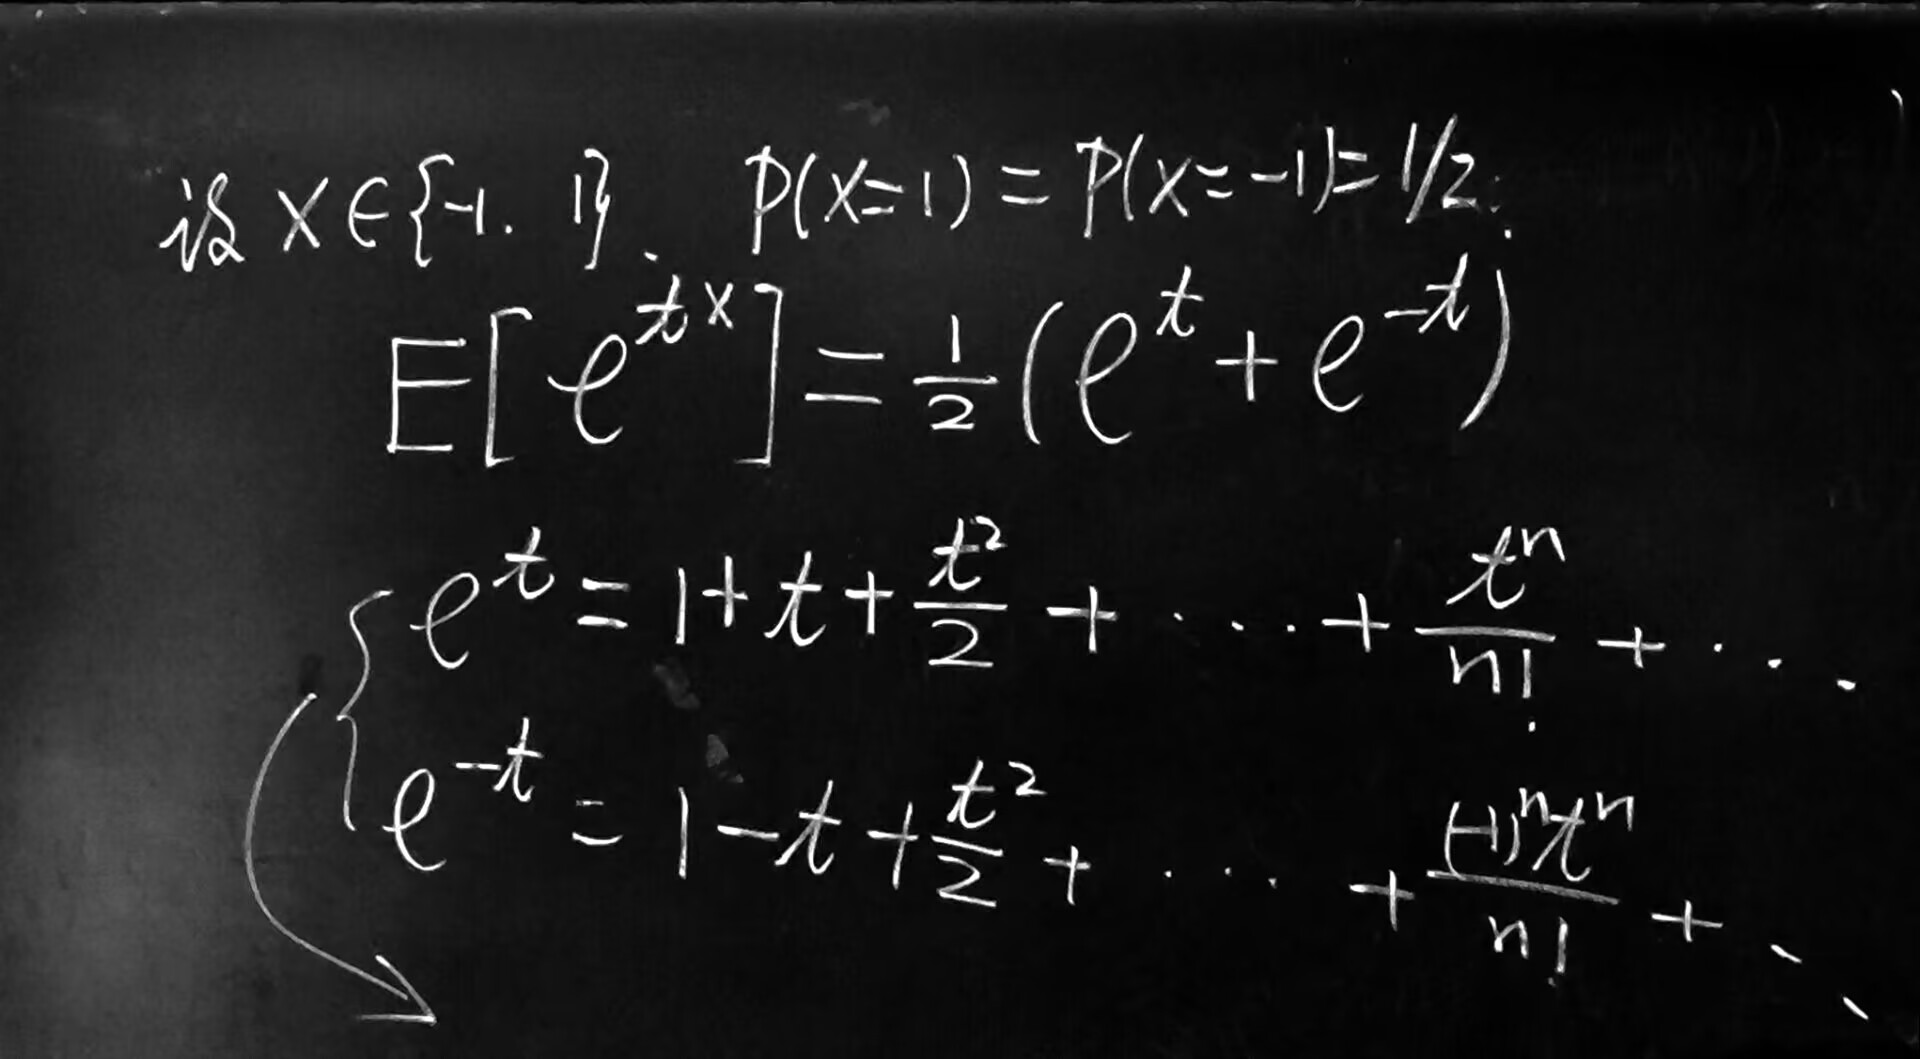 设 X ∈ {-1. 1}. P(X=1) = P(X=-1) = 1/2.
E[e^{tX}] = \frac{1}{2}(e^t + e^{-t})
e^t = 1 + t + \frac{t^2}{2} + ··· + \frac{t^n}{n!} + ···
e^{-t} = 1 - t + \frac{t^2}{2} + ··· + \frac{(-1)^n t^n}{n!} + ··